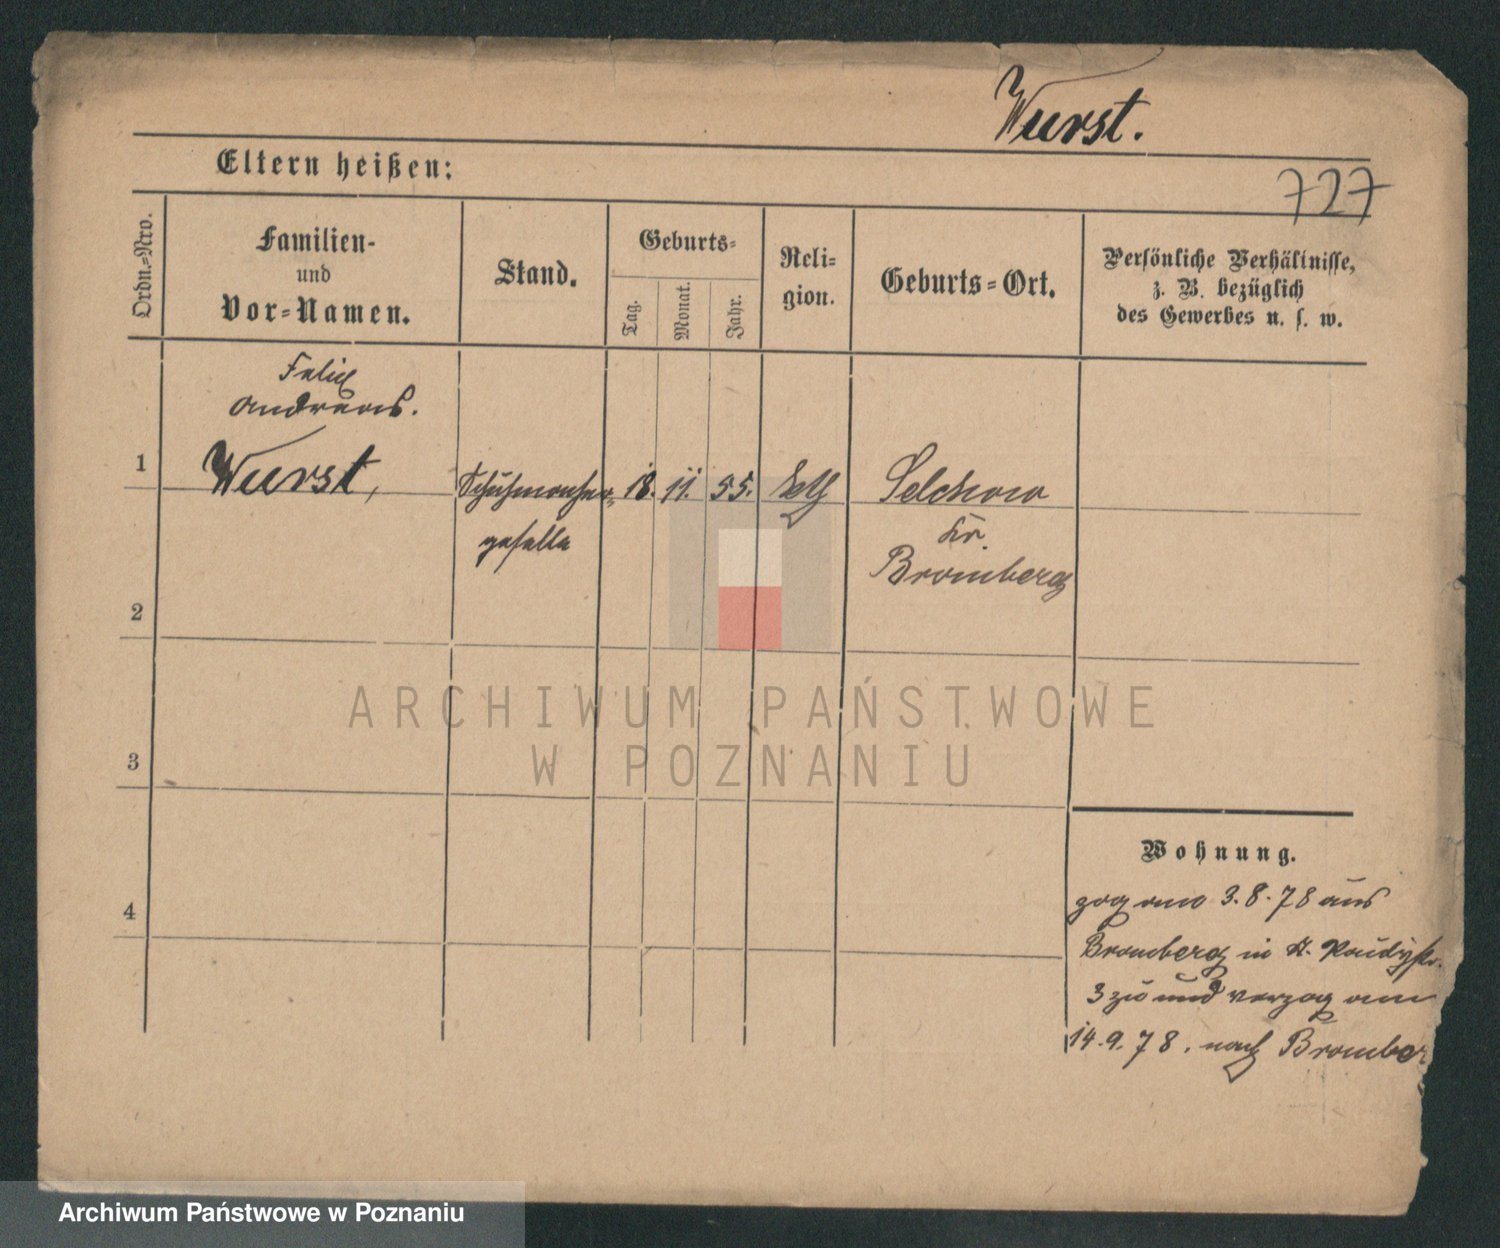 Wurst.
Eltern heißen:
727
Ordn.=Nro.
Familien-
und
Vor=Namen.
Stand.
Geburts=
Tag.
Monat.
Jahr.
Reli=
gion.
Geburts=Ort.
Persönliche Verhältnisse,
z. B. bezüglich
des Gewerbes u. s. w.
Felix
Andreas.
1
Wurst,
Schuhmacher=
18.
11.
55.
kth
Selchow
geselle
Kr.
Bromberg
2
ARCHIWUM PAŃSTWOWE
W POZNANIU
3
Wohnung.
4
zog am 3.8.78 aus
Bromberg in
3 zu und verzog am
14.9.78. nach Bromber
Archiwum Państwowe w Poznaniu